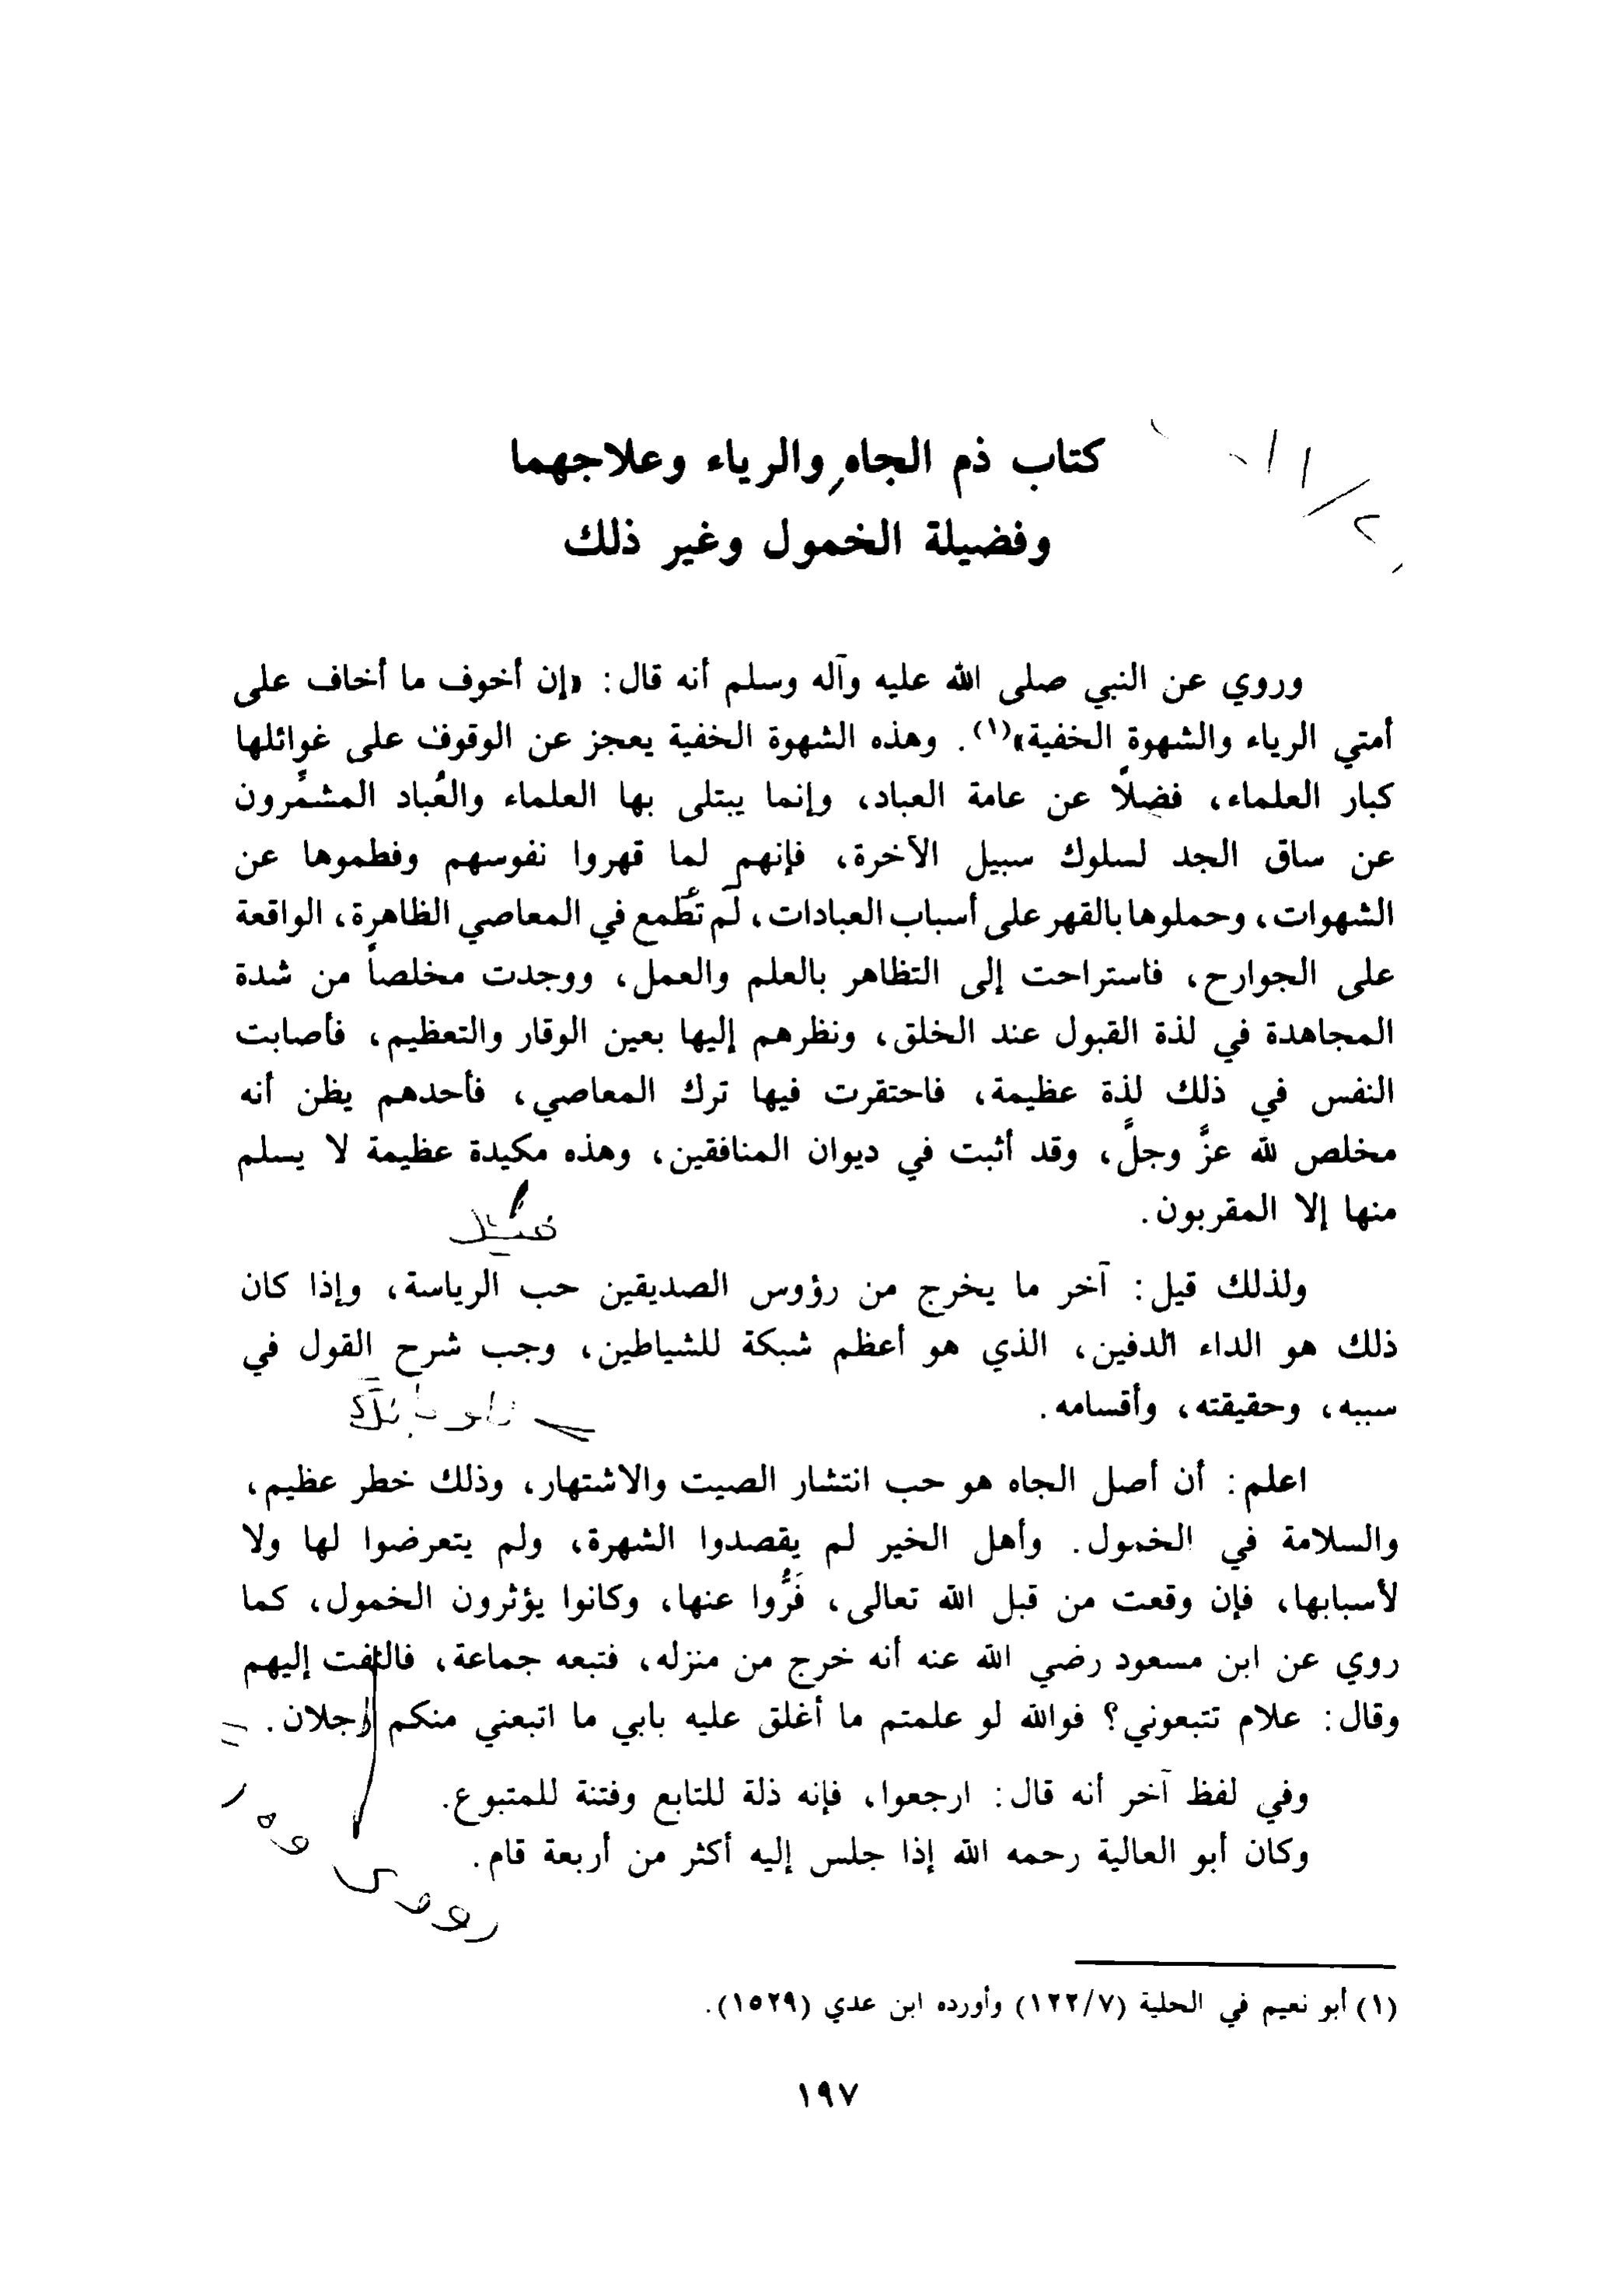 كتاب ذم الجاه والرياء وعلاجهما
وفضيلة الخمول وغير ذلك
وروي عن النبي صلى الله عليه وآله وسلم أنه قال: «إن أخوف ما أخاف على
أمتي الرياء والشهوة الخفية»(١). وهذه الشهوة الخفية يعجز عن الوقوف على غوائلها
كبار العلماء، فضلاً عن عامة العباد، وإنما يبتلى بها العلماء والعُباد المشمِّرون
عن ساق الجد لسلوك سبيل الآخرة، فإنهم لما قهروا نفوسهم وفطموها عن
الشهوات، وحملوها بالقهر على أسباب العبادات، لم تَطْمع في المعاصي الظاهرة، الواقعة
على الجوارح، فاستراحت إلى التظاهر بالعلم والعمل، ووجدت مخلصاً من شدة
المجاهدة في لذة القبول عند الخلق، ونظرهم إليها بعين الوقار والتعظيم، فأصابت
النفس في ذلك لذة عظيمة، فاحتقرت فيها ترك المعاصي، فأحدهم يظن أنه
مخلص لله عزَّ وجلَّ، وقد أثبت في ديوان المنافقين، وهذه مكيدة عظيمة لا يسلم
منها إلا المقربون.
ولذلك قيل: آخر ما يخرج من رؤوس الصديقين حب الرياسة، وإذا كان
ذلك هو الداء الدفين، الذي هو أعظم شبكة للشياطين، وجب شرح القول في
سببه، وحقيقته، وأقسامه.
اعلم: أن أصل الجاه هو حب انتشار الصيت والاشتهار، وذلك خطر عظيم،
والسلامة في الخمول. وأهل الخير لم يقصدوا الشهرة، ولم يتعرضوا لها ولا
لأسبابها، فإن وقعت من قبل الله تعالى، فَرُّوا عنها، وكانوا يؤثرون الخمول، كما
روي عن ابن مسعود رضي الله عنه أنه خرج من منزله، فتبعه جماعة، فالتفت إليهم
وقال: علام تتبعوني؟ فوالله لو علمتم ما أغلق عليه بابي ما اتبعني منكم رجلان.
وفي لفظ آخر أنه قال: ارجعوا، فإنه ذلة للتابع وفتنة للمتبوع.
وكان أبو العالية رحمه الله إذا جلس إليه أكثر من أربعة قام.
(١) أبو نعيم في الحلية (٧/١٢٢) وأورده ابن عدي (١٥٢٩).
١٩٧